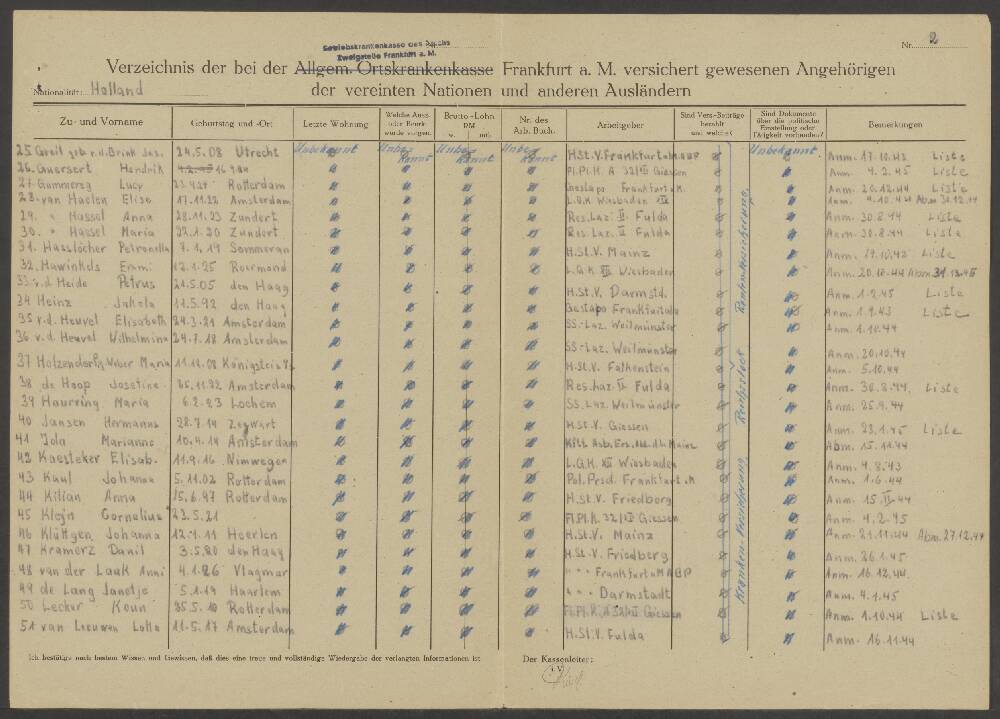 Betriebskrankenkasse des Reichs
Zweigstelle Frankfurt a. M.
Nr. 2
Verzeichnis der bei der Allgem. Ortskrankenkasse Frankfurt a. M. versichert gewesenen Angehörigen
Nationalität: Holland
der vereinten Nationen und anderen Ausländern
Zu- und Vorname Geburtstag und -Ort Letzte Wohnung Welche Ausw. oder Beurk. wurde vorgen. Brutto-Lohn RM w. mtl. Nr. des Arb. Buch. Arbeitgeber Sind Vers-Beiträge bezahlt und welche? Sind Dokumente über die politische Einstellung oder Tätigkeit vorhanden? Bemerkungen
25 geb. v.d. Brink Jos. 24.5.08 Utrecht Unbekannt Unbekannt Unbekannt Unbekannt H.St.V. Frankfurt Unbekannt Anm. 17.10.43 Liste
26. Guersert Hendrik Fl.Pl.K. A 32/XII Giessen Anm. 4.2.45 Liste
27 Gummerey Lucy Rotterdam Gestapo Frankfurt a.M. Anm. 20.12.44 Liste
28. van Haelen Elise 17.11.22 Amsterdam L.G.K Wiesbaden XII Anm. 9.10.44 Abm 30.12.44
29. " Hassel Anna 28.11.23 Zundert Res. Laz. II. Fulda Anm. 30.8.44 Liste
30. " Hassel Maria 22.1.20 Zundert Res. Laz. II Fulda Anm. 30.8.44 Liste
31. Hasslöcher Petronella 7.1.19 Sommeran H.St.V. Mainz Anm. 19.10.43 Liste
32. Hawinkels Emmi 12.1.25 Roermond L.G.K XII Wiesbaden Anm. 20.10.44 Abm. 31.12.45
33. v.d. Heide Petrus 24.5.05 den Haag H.St.V. Darmstd. Anm. 1.2.45 Liste
34 Heinz Jakola 11.5.92 den Haag Gestapo Frankfurt Anm. 1.9.43 Liste
35 v.d. Heuvel Elisabeth 24.3.21 Amsterdam SS-Laz. Weilmünster Anm. 1.10.44
36 v.d. Heuvel Wilhelmina 24.7.18 Amsterdam SS-Laz. Weilmünster Anm. 20.10.44
37 Holzendorf Weber Maria 11.12.08 Königstein H.St.V. Falkenstein Anm. 5.10.44
38 de Hoop Josefine 25.11.22 Amsterdam Res. Laz. II Fulda Anm. 30.8.44. Liste
39 Haurring Maria 6.2.23 Lochem SS. Laz. Weilmünster Anm. 25.9.44
40 Jansen Hermanns 28.7.14 Zegwart H.St.V. Giessen Anm. 23.1.45 Liste
41 Jola Marianne 10.4.14 Amsterdam Kfz. Asb. Ers. Abt. Mainz Abm. 15.11.44
42 Kaesteker Elisab. 11.9.16 Nimwegen L.G.K XII Wiesbaden Anm. 4.8.43
43 Kaul Johanna 5.11.02 Rotterdam Pol. Präd. Frankfurt M Anm. 1.6.44
44 Kilian Anna 15.6.97 Rotterdam H.St.V. Friedberg Anm. 15.II.44
45 Klejn Cornelius 23.5.21 Fl.Pl.K. 32/XII Giessen Anm. 4.2.45
46 Klüttgen Johanna 12.1.11 Heerlen H.St.V. Mainz Anm. 21.11.44 Abm. 27.12.44
47 Kramerz Danil 3.5.20 den Haag H.St.V. Friedberg Anm. 26.1.45
48 van der Laak Anni 4.1.26 Vlagmar " " " Frankfurt a M ABP Anm. 16.12.44
49 de Lang Janetje 5.1.19 Haarlem " " " Darmstadt Anm. 4.1.45
50 Lecker Koun 25.5.10 Rotterdam Fl.Pl.K.A 32/XII Giessen Anm. 1.10.44 Liste
51 van Leeuwen Lotte 11.5.17 Amsterdam H.St.V. Fulda Anm. 16.11.44
Kranken-Versicherung Reichsstock Rentenversicherung
Ich bestätige nach bestem Wissen und Gewissen, daß dies eine treue und vollständige Wiedergabe der verlangten Informationen ist
Der Kassenleiter:
I.V.